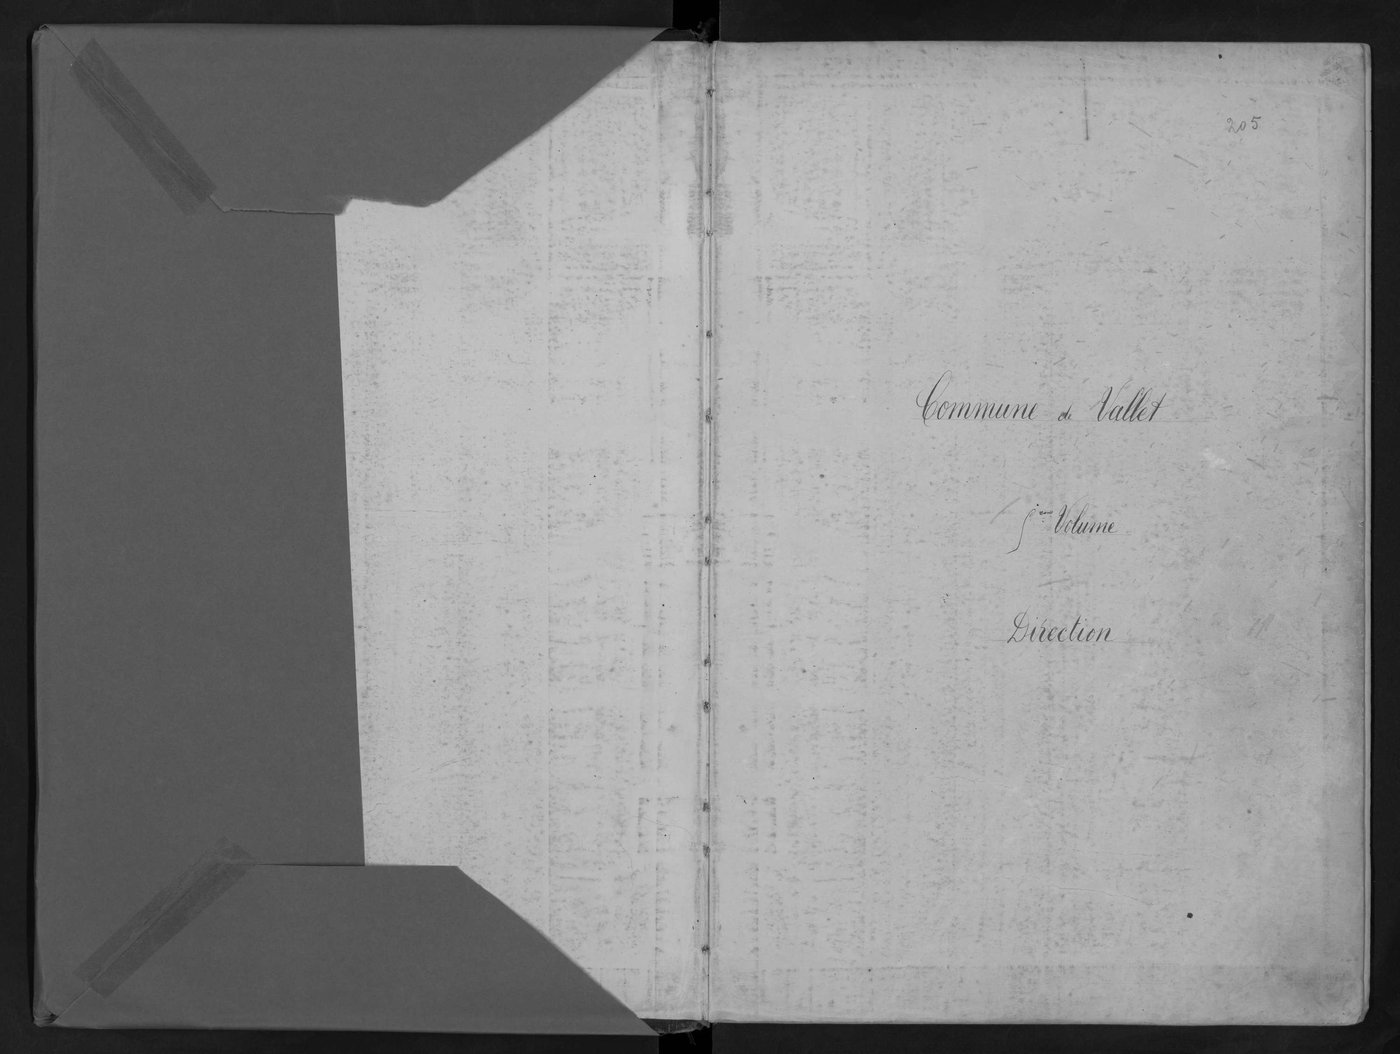 205
Commune de Vallet
5ème Volume
Direction